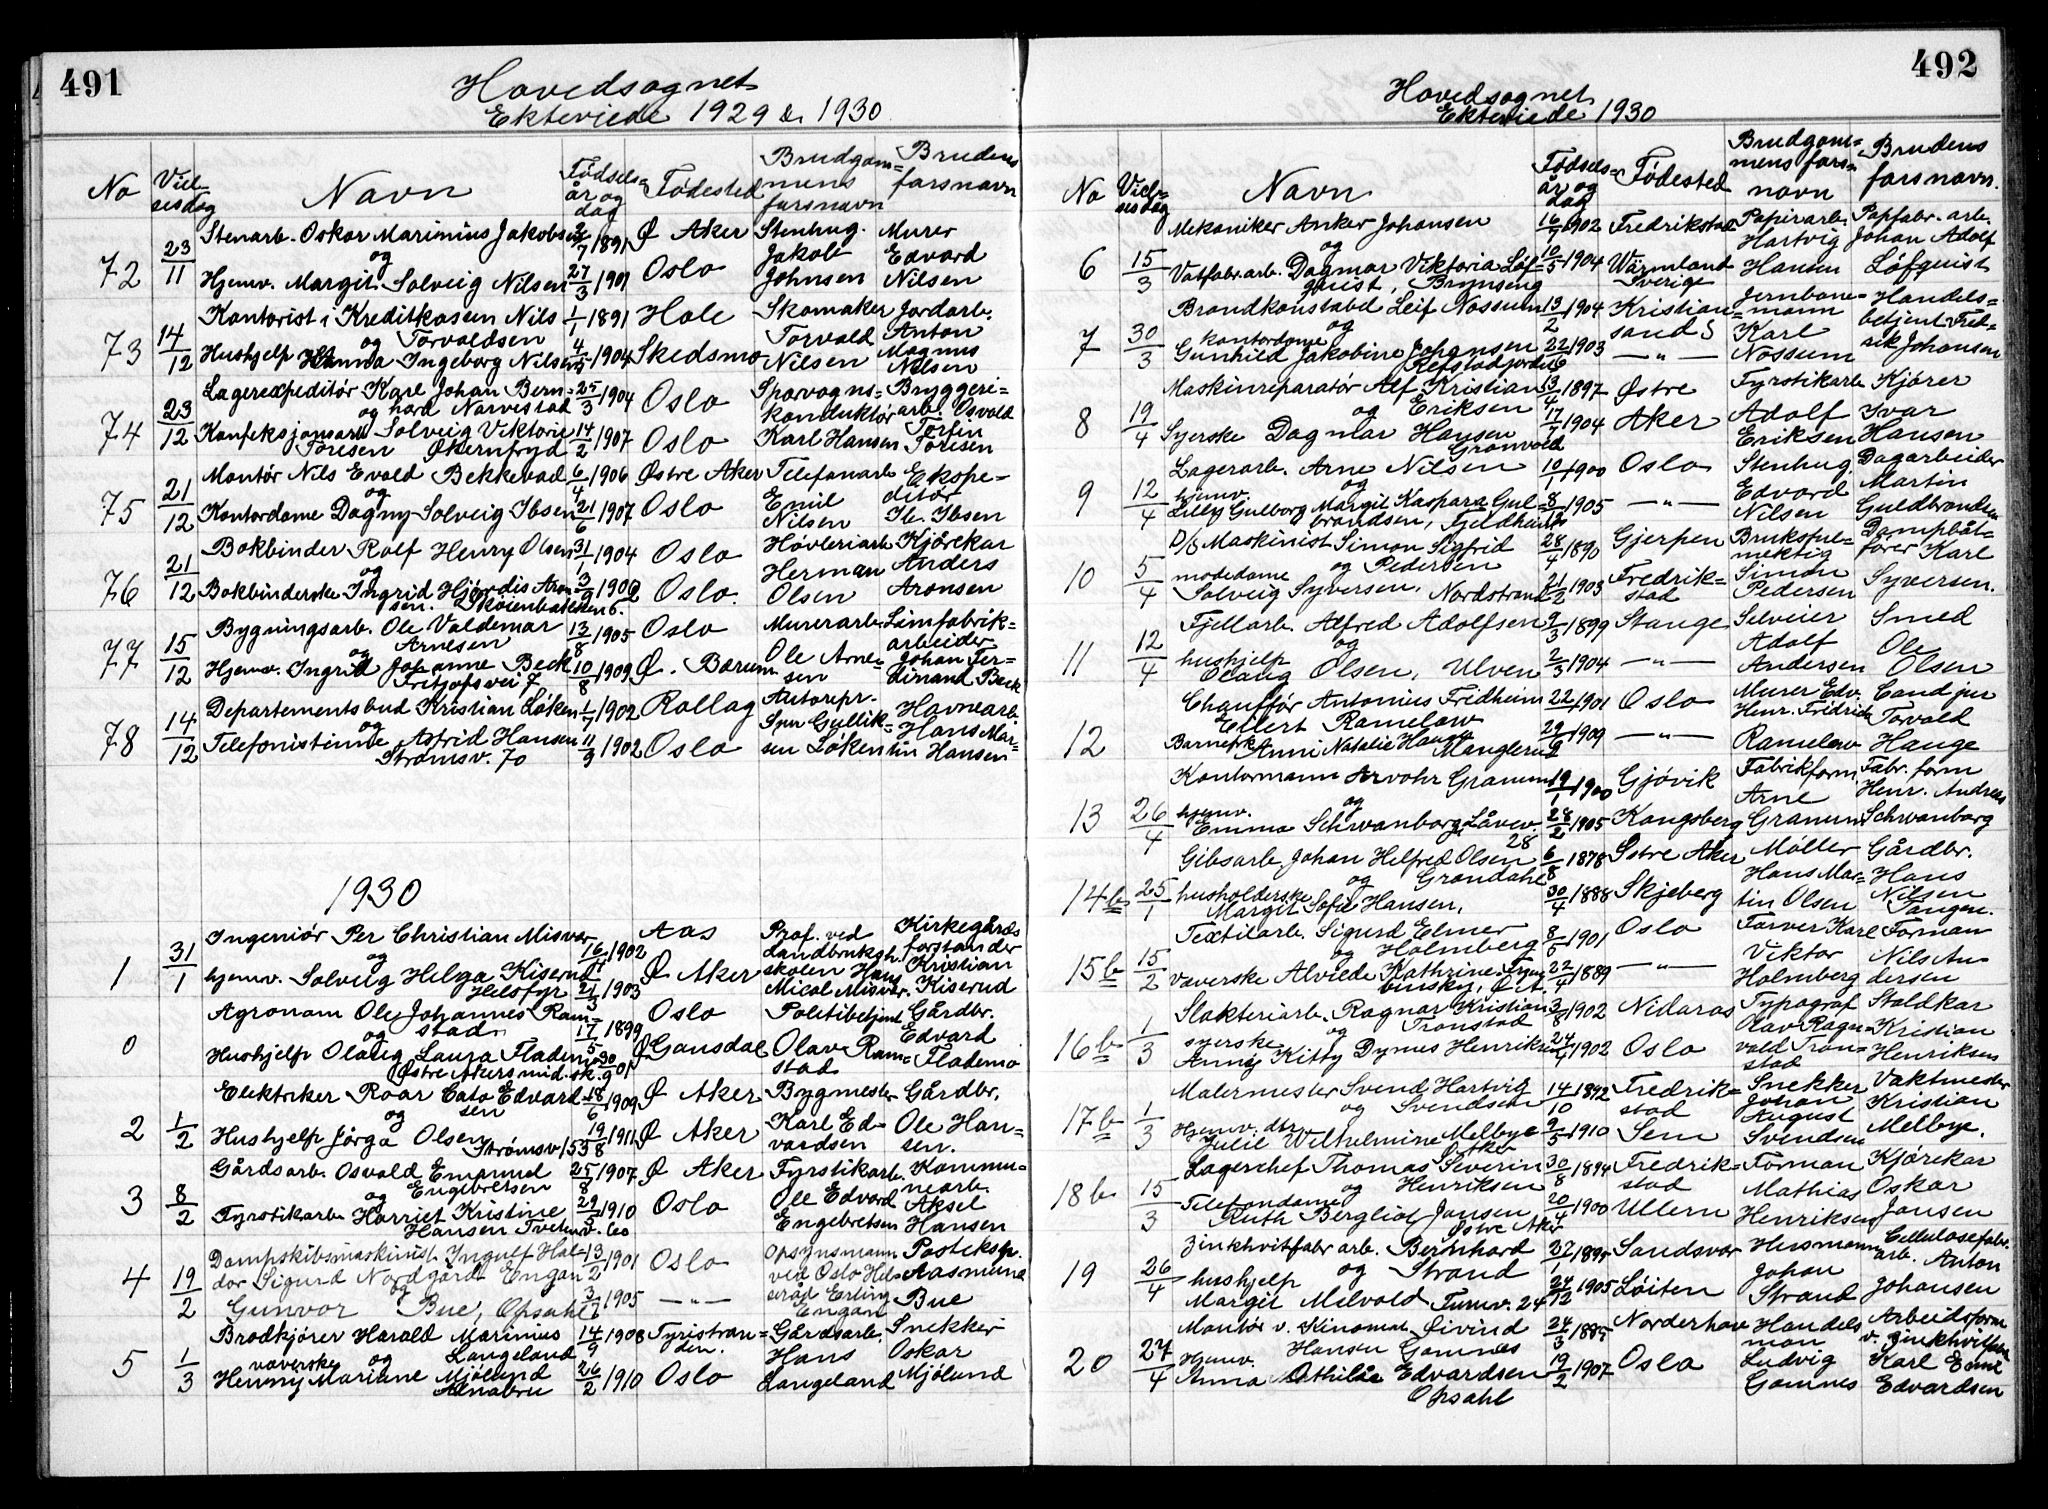 491
Hovedsognet
Ekteviede 1929 & 1930
No
Viel-
sesdag
Navn
Fødsels-
år og
dag
Fødested
Brudgom-
mens
farsnavn
Brudens
farsnavn
72
23/11
Stenarb. Oskar Marinius Jakobsen
og
Hjemv. Margit Solveig Nilsen
/7 1891
27/3 1901
Ø Aker
Oslo
Stenhug.
Jakob
Johnsen
Murer
Edvard
Nilsen
73
14/12
Kontorist i Kreditkassen Nils
og Torvaldsen
Hushjelp Hanna Ingeborg Nilsen
1/1 1891
1904
Hole
Skedsmo
Skomaker
Torvald
Nilsen
Jordarb.
Anton
Magnus
Nilsen
74
23/12
Lagerexpeditør Karl Johan Bern-
og hard Narvestad
Konfeksjonsarb Solveig Viktoria
Toresen Økernfryd
25/3 1904
14/2 1907
Oslo
Oslo
Sporvogns-
konduktør
Karl Hansen
Bryggeri-
arb. Osvald
Torfin
Toresen
75
21/12
Montør Nils Evald Bekkevad
og
Kontordame Dagny Solveig Ibsen
6/4 1906
21/6 1907
Østre Aker
Oslo
Telefonarb
Emil
Nilsen
Ekspe-
ditør
Ib. Ibsen
76
21/12
Bokbinder Rolf Henry Olsen
og
Bokbinderske Ingrid Hjørdis Aron-
sen. Skøienbakken 6.
31/1 1904
3/9 1909
Oslo
Oslo.
Høvleriarb
Herman
Olsen
Kjørekar
Anders
Aronsen
77
15/12
Bygningsarb. Ole Valdemar
og Arnesen
Hjemv. Ingrid Johanne Beck
Fritjofsvei 7
13/8 1905
10/8 1909
Oslo
Ø. Bærum
Murerarb
Ole Arne-
sen
Limfabrik-
arbeider
Johan Fer-
dinand Beck
78
14/12
Departementsbud Kristian Løken
og
Telefonistinne Astrid Hansen
Strømsv. 70
1/7 1902
11/9 1902
Rollag
Oslo
Autorepr.
Spen Gullik-
sen Løken
Havnearb.
Hans Mar-
tin Hansen
1930
1
31/1
Ingeniør Per Christian Misvær
og
hjemv. Solveig Helga Kiserud
Helsfyr
16/11 1902
21/3 1903
Aas
Ø Aker
Prof. ved
Landbruksh.
skolen Hans
Mical Misvær.
Kirkegårds
forstander
Kristian
Kiserud
0
Agronom Ole Johannes Ram-
og stad
Hushjelp Olaug Laura Flademo
Østre Akers mid. sk.
17/5 1899
30/9 01
Oslo
Ø Gausdal
Politibetjent
Olav Ram-
stad
Gårdbr.
Edvard
Flademo
2
1/2
Elektriker Roar Cato Edvard-
og sen
Hushjelp Jørga Olsen
Strømsv 153
18/6 1909
19/8 1911
Ø Aker
Ø Aker
Bygmester
Karl Ed-
vardsen
Gårdbr.
Ole Han-
sen.
3
8/2
Gårdsarb. Osvald Emanuel
og Engebretsen
Fyrstikarb Harriet Kristine
Hansen Tvetenv. 60
25/8 1907
29/5 1910
Ø Aker
Oslo
Fyrstikarb.
Ole Edvard
Engebretsen
Kommu-
nearb.
Aksel
Hansen
4
19/2
Dampskibsmaskinist Ingulf Hal-
dor Sigurd Nordgård Engan
og
Gunvor Bue, Opsahl
13/2 1901
1905
Oslo
— " —
Opsynsmann
ved Oslo Hel-
seråd Erling
Engan
Posteksp.
Aasmund
Bue
5
1/3
Brødkjører Harald Marinius
væverske og Langeland
Henny Mariane Mjølund
Alnabru
14/9 1908
26/2 1910
Tyristran-
den.
Oslo
Gårdsarb.
Hans
Langeland
Snekker
Oskar
Mjølund
492
Hovedsognet
Ekteviede 1930
No
Viel-
sesdag
Navn
Fødsels-
år og
dag
Fødested
Brudgom-
mens fars-
navn
Brudens
farsnavn.
6
15/3
Mekaniker Anker Johansen
og
Vatfabr.arb. Dagmar Viktoria Löf-
quist, Brynseng
16/7 1902
10/5 1904
Fredrikstad
Wärmland
Sverige
Papirarb.
Hartvig
Hansen
Papfabr. arb.
Johan Adolf
Löfquist
7
30/3
Brandkonstabel Leif Nossum
kontordame og
Gunhild Jakobine Johansen
Refstadjordet
13/2 1904
22/6 1903
Kristian-
sand S
— " —
Jernbane-
mann
Karl
Nossum
Handels-
betjent Fred-
rik Johansen
8
19/4
Maskinreparatør Alf Kristian
og Eriksen
Syerske Dagmar Hansen
Grønvold
13/4 1897
17/1 1904
Østre
Aker
Fyrstikarb
Adolf
Eriksen
Kjører
Ivar
Hansen
9
12/4
Lagerarb. Arne Nilsen
hjemv. og
Lilly Gulborg Margit Kaspara Gul-
brandsen, Fjeldheim
10/1 1900
8/12 1905
Oslo
— " —
Stenhug.
Edvard
Nilsen
Dagarbeider
Martin
Guldbrandsen
10
5/4
D/S Maskinist Simon Sigfrid
modedame og Pedersen
Solveig Syversen, Nordstrand
28/4 1890
21/2 1903
Gjerpen
Fredrik-
stad
Bruksful-
mektig
Simon
Pedersen
Dampbåt-
fører Karl
Syversen.
11
12/4
Fjellarb. Alfred Adolfsen
hushjelp og
Olaug Olsen, Ulven
9/3 1899
2/3 1904
Stange
— " —
Selveier
Adolf
Andersen
Smed
Ole
Olsen
12
Chauffør Antonius Fridheim
Eilert Ramelow
Barnepike Anni Natalie Hauge Manglerud
22/1 1901
29/9 1909
Oslo
— " —
Murer Edv.
Henr. Fridrich
Ramelow
Cand jur
Torvald
Hauge
13
26/4
Kontormann Arvohr Granum
hjemv. og
Emma Schwanborg, Låvev.
28
19/1 1900
28/2 1905
Gjøvik
Kongsberg
Fabrikform.
Arne
Granum
Fabr. form
Henr. Andreas
Schwanborg
14b
25/1
Gibsarb. Johan Helfred Olsen
og Grøndahl
husholderske
Margit Sofie Hansen,
6/8 1878
30/4 1888
Østre Aker
Skjeberg
Møller
Hans Mar-
tin Olsen
Gårdbr.
Hans
Nilsen
Tangen.
15b
15/2
Textilarb. Sigurd Elmer
og Holmberg
Væverske Alviede Kathrine
, Ø. A.
8/5 1901
22/4 1889
Oslo
— " —
Farver Karl
Viktor
Holmberg
Forman
Nils An-
dersen
16b
1/3
Slakteriarb. Ragnar Kristian
og Tronstad
syerske
Anny Kitty Dymes Henriksen
3/8 1902
24/4 1902
Nidaros
Oslo
Typograf
Olav Ragn-
vald Tron-
stad
Staldkar
Kristian
Henriksen
17b
1/3
Malermester Svend Hartvig
og Svendsen
Hjemv. dtr
Julie Wilhelmine Melbye
14/10 1892
9/5 1910
Fredrik-
stad
Sem
Snekker
Johan
August
Svendsen
Vaktmester
Kristian
Melbye.
18b
15/3
Lagerchef Thomas Severin
og Henriksen
Telefondame
Ruth Bergliot Jansen
Østre Aker
30/8 1894
20/4 1900
Fredrik-
stad
Ullern
Forman
Mathias
Henriksen
Kjørekar
Oskar
Jansen
19
26/4
Zinkhvitfabr arb. Bernhard
og Strand
hushjelp
Margit Milvold Turnv. 24
/1
24/12 1905
Sandsvær
Løiten
Husmann
Johan
Strand
Cellulosefabr.
arb. Anton
Johansen
20
27/4
Montør v. Kinomat. Øivind
Hansen Gomnes
Hjemv.
Anna Mathilde Edvardsen
Opsahl
24/3
19/2 1907
Norderhov
Oslo
Handels
man
Ludvig
Gomnes
Arbeidsform
v. Zinkhvitfabr
Karl Emil
Edvardsen